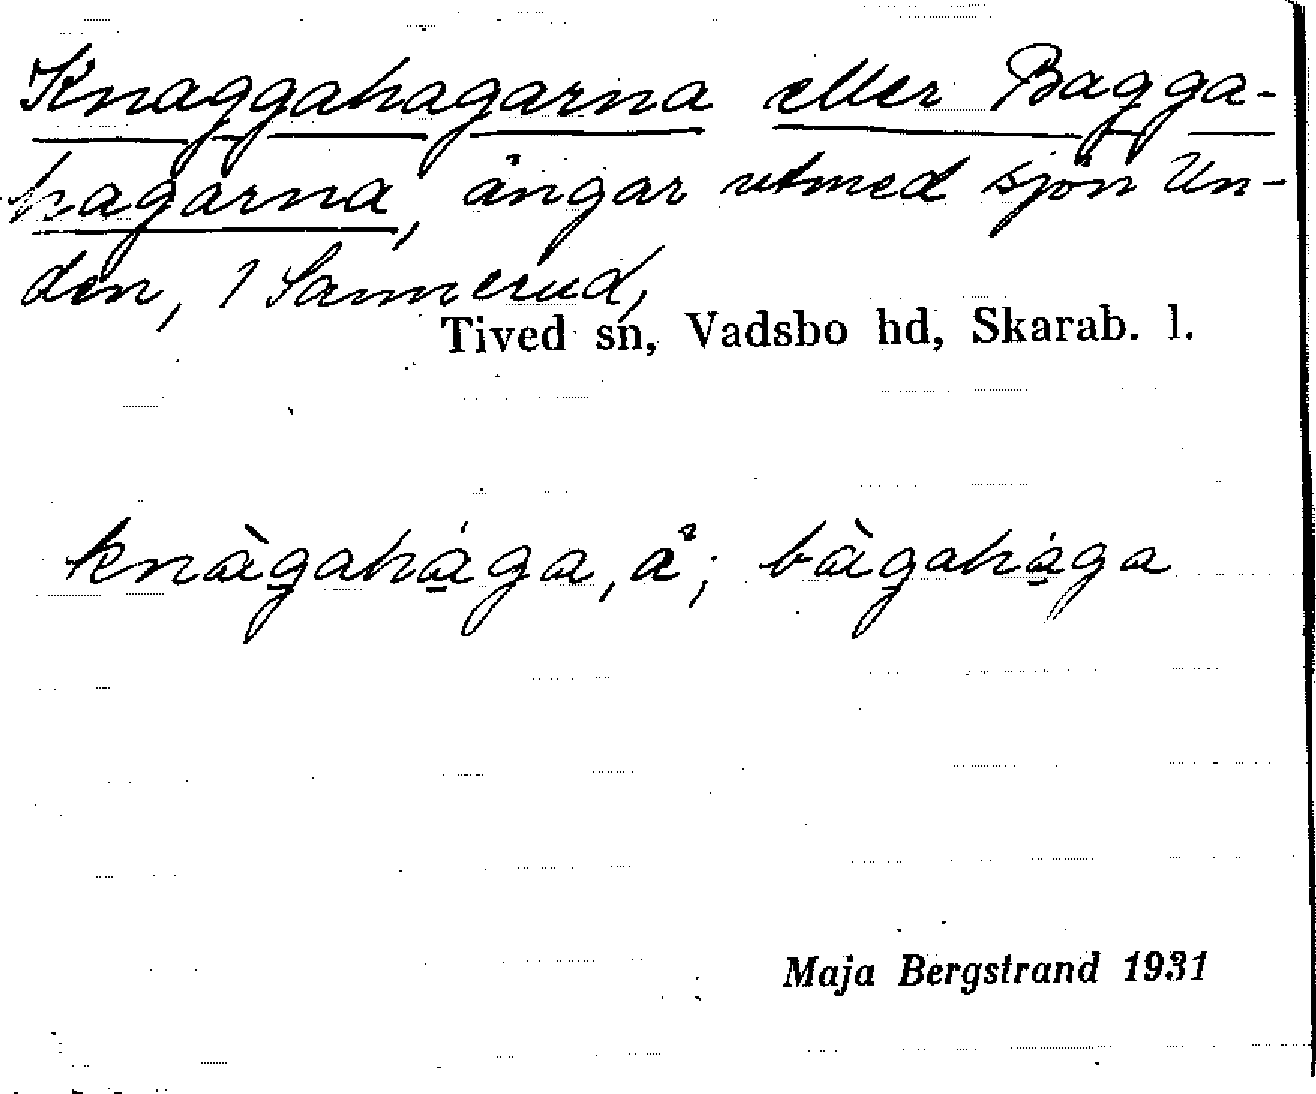 Knaggahagarna eller Bagga-
hagarna, ängar utmed sjön Un-
den, 1 Sannerud,
Tived sn, Vadsbo hd, Skarab. l.
knàg̲ahá̲ga, å; bàg̲ahá̲ga
Maja Bergstrand 1931